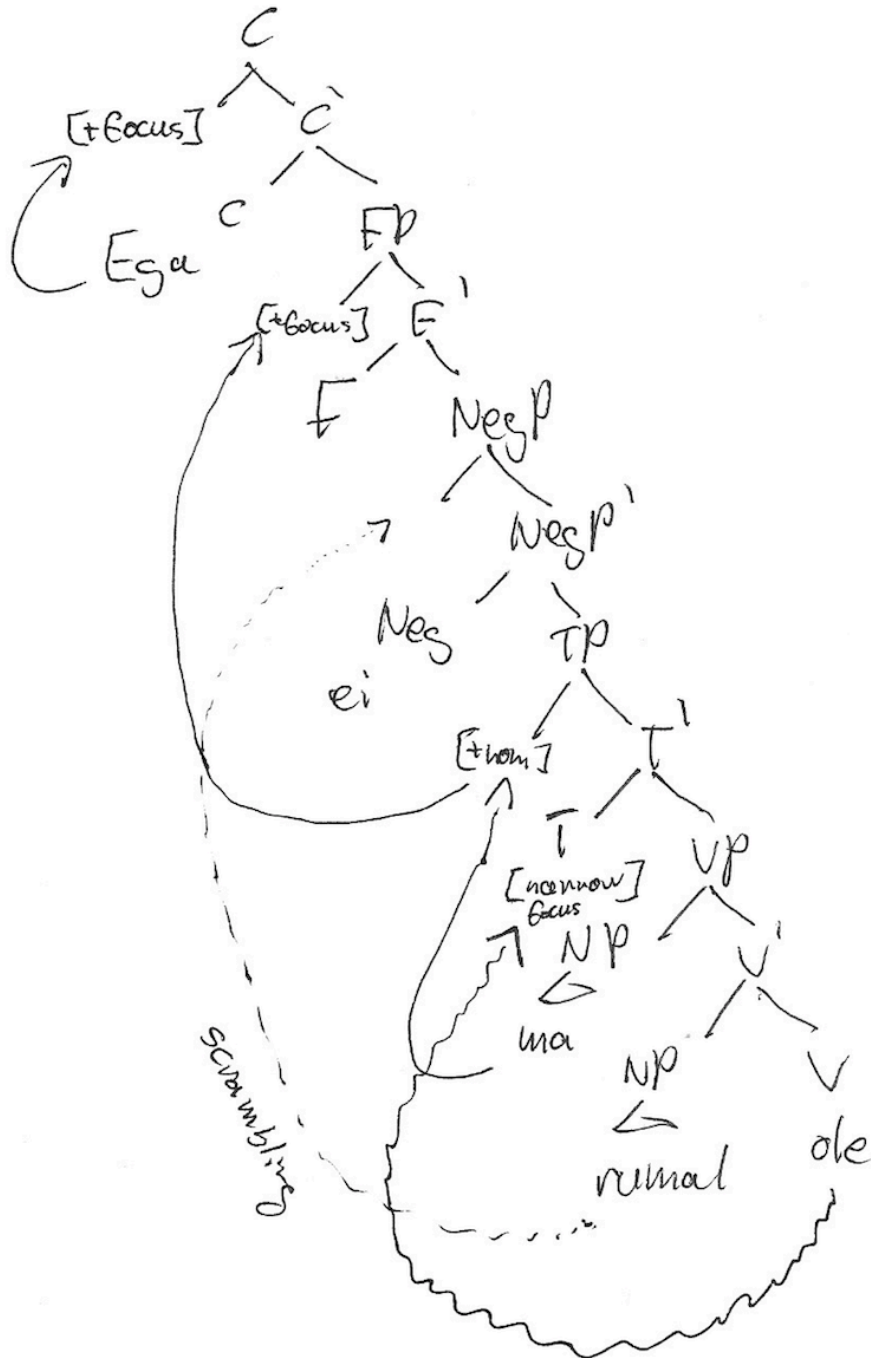 C
[+focus] C'
C
Ega FP
[+focus] F'
F NegP
NegP'
Neg TP
ei
[+nom] T'
T VP
[narrow]
focus
NP V'
ma
NP V
rumal ole
scrambling